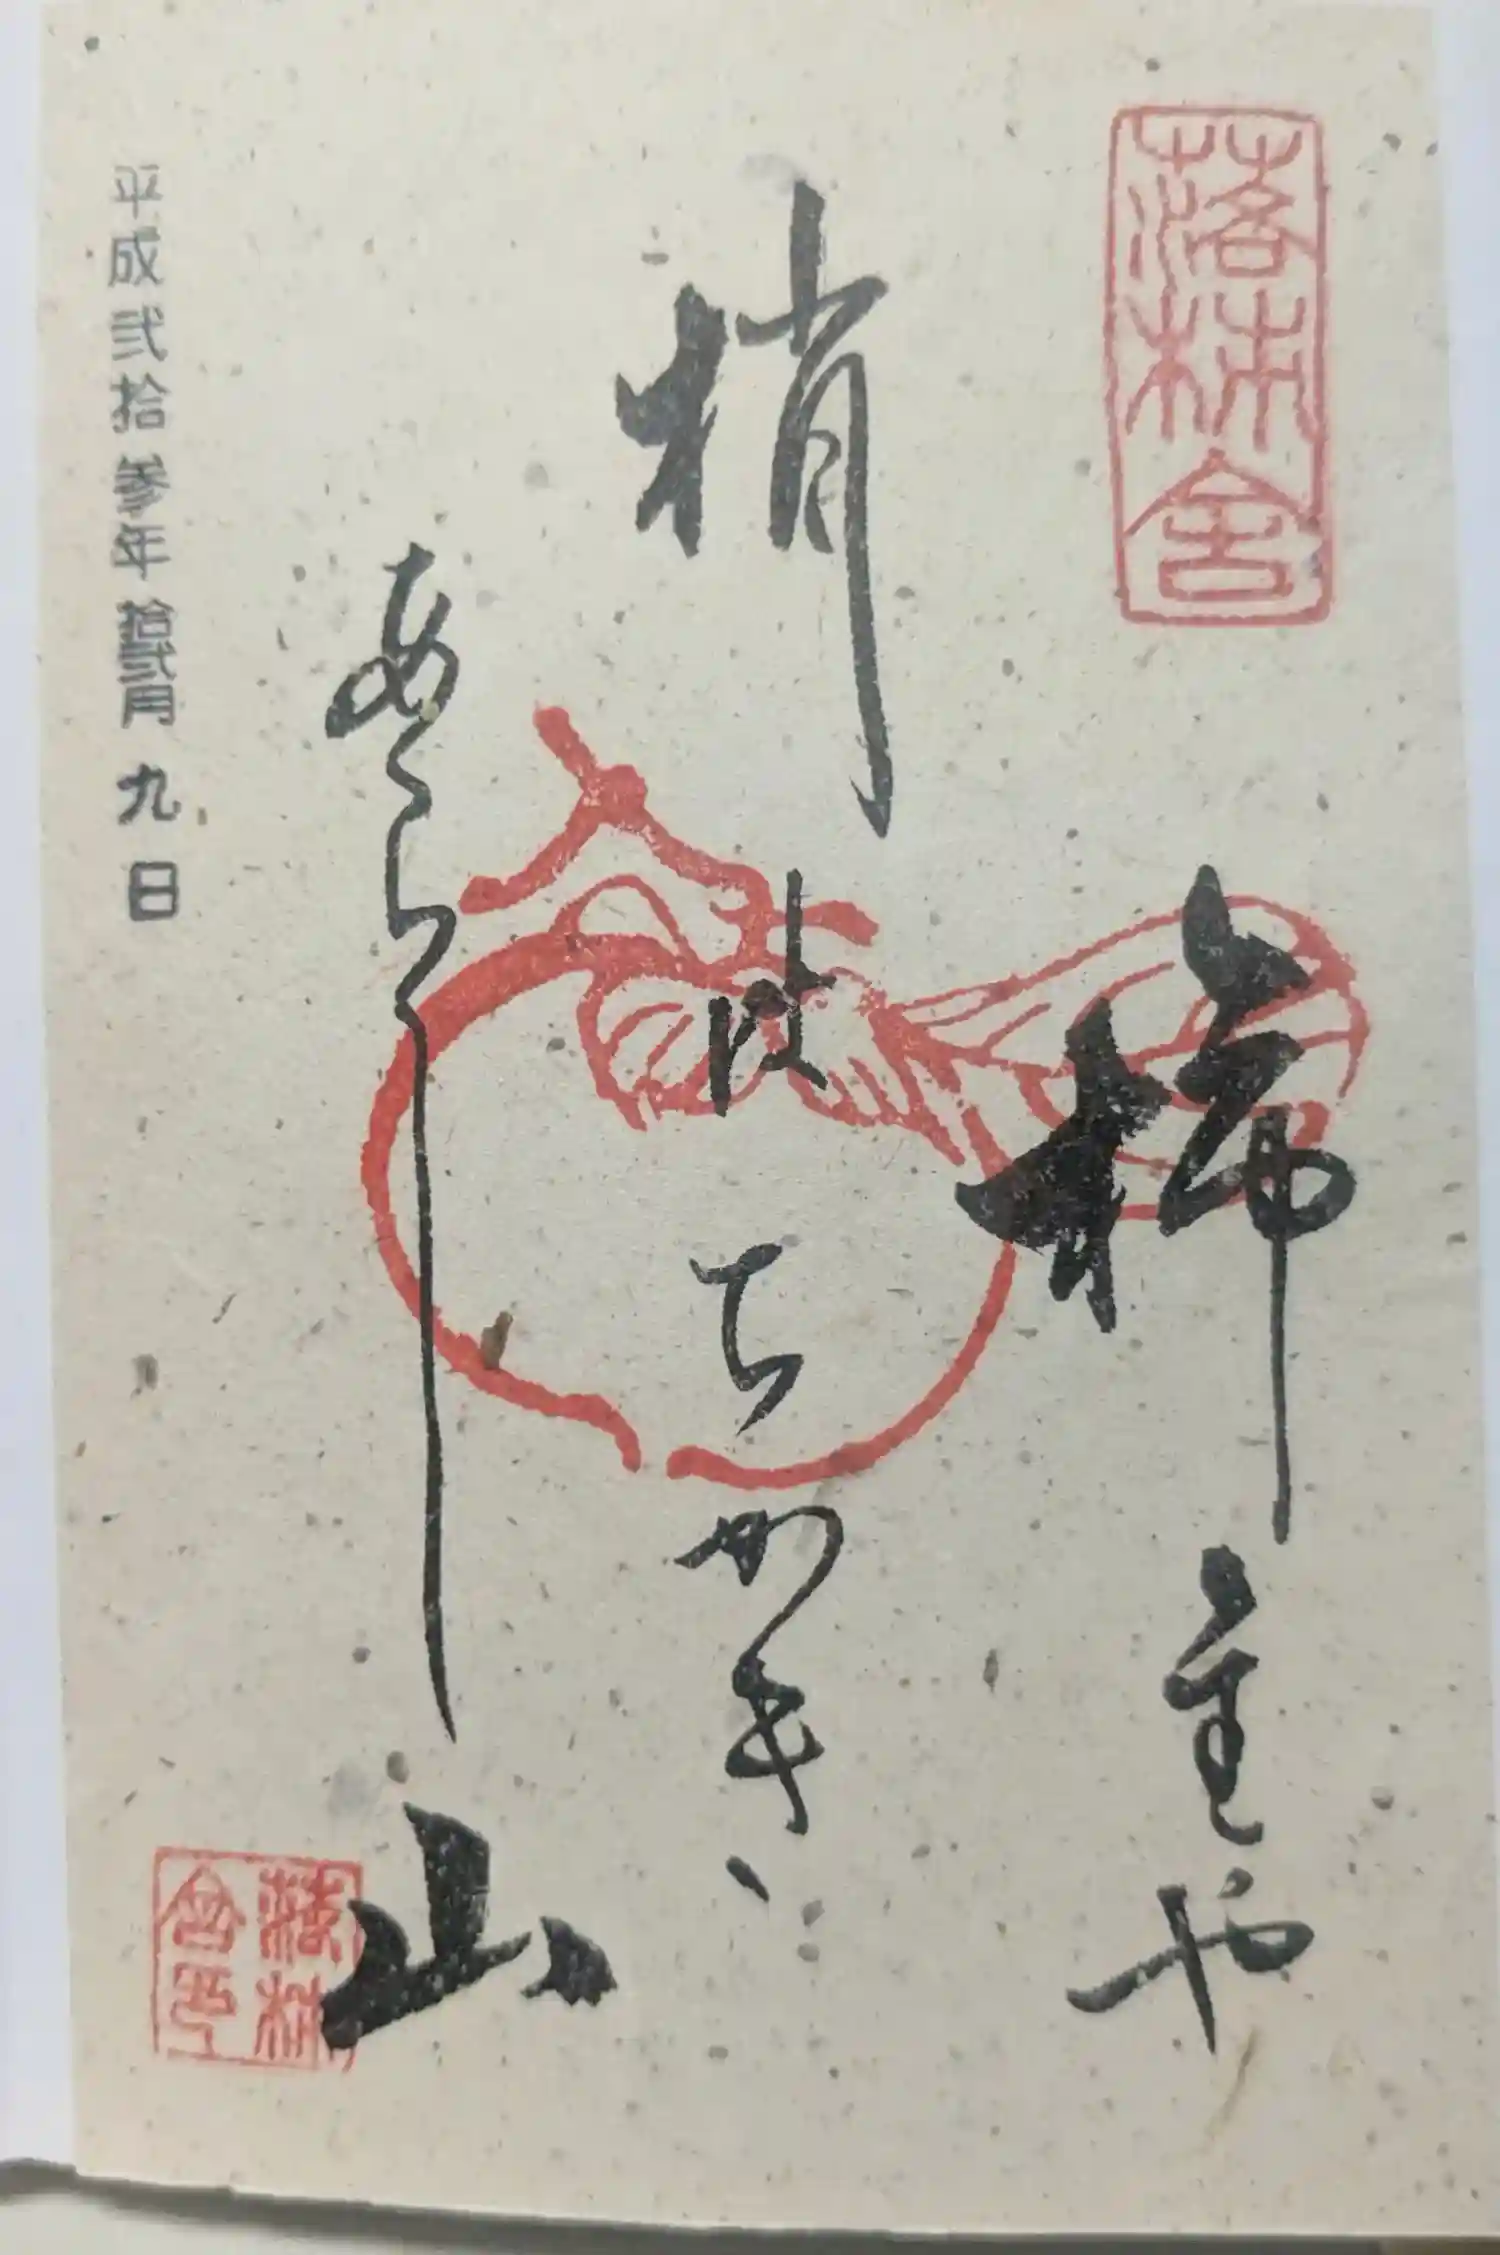 落柿舎
柿主や
梢はちかき
あらし山
平成弐拾参年拾弐月九日
落柿舎印